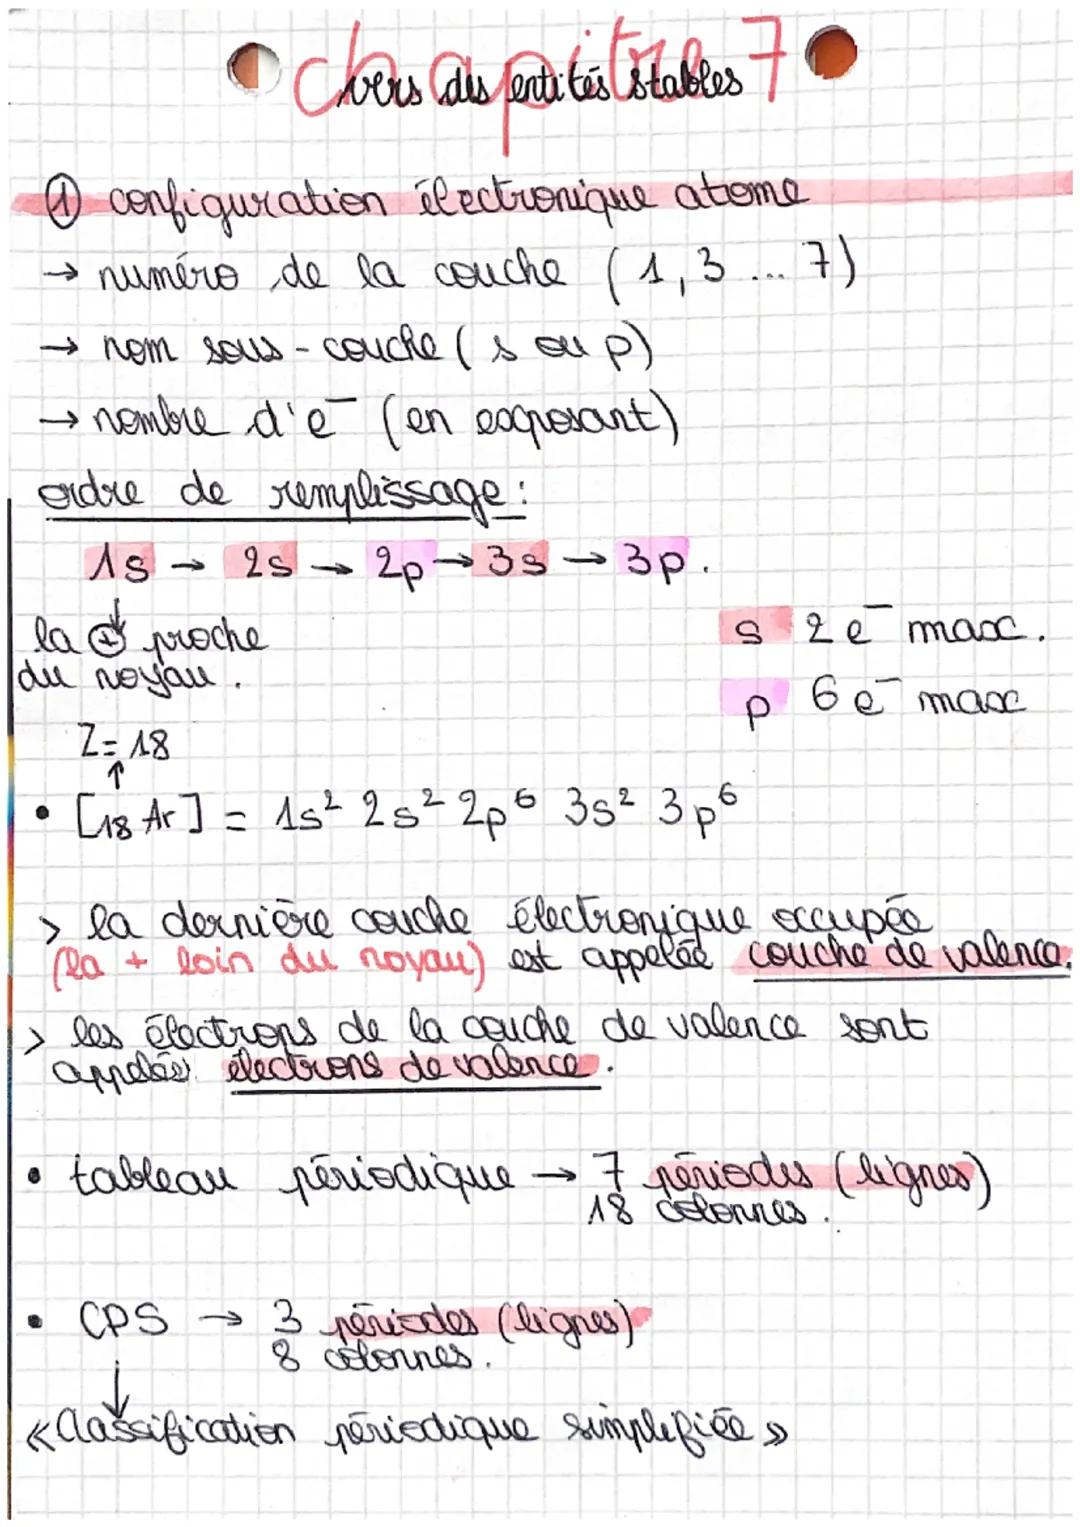 Chapitre 7
vers des entités stables
① configuration électronique atome
→ numéro de la couche (1, 3 ... 7)
→ nom sous-couche (s ou p)
→ nombre d'e⁻ (en exposant)
ordre de remplissage :
1s → 2s → 2p → 3s → 3p.
↓
la ⊕ proche
du noyau.
s 2 e⁻ max.
p 6 e⁻ max
Z = 18
↑
• [₁₈Ar] = 1s² 2s² 2p⁶ 3s² 3p⁶
> la dernière couche électronique occupée
(la + loin du noyau) est appelée couche de valence.
> les électrons de la couche de valence sont
appelés électrons de valence.
• tableau périodique → 7 périodes (lignes)
18 colonnes.
• CPS → 3 périodes (lignes)
8 colonnes.
↓
«Classification périodique simplifiée»